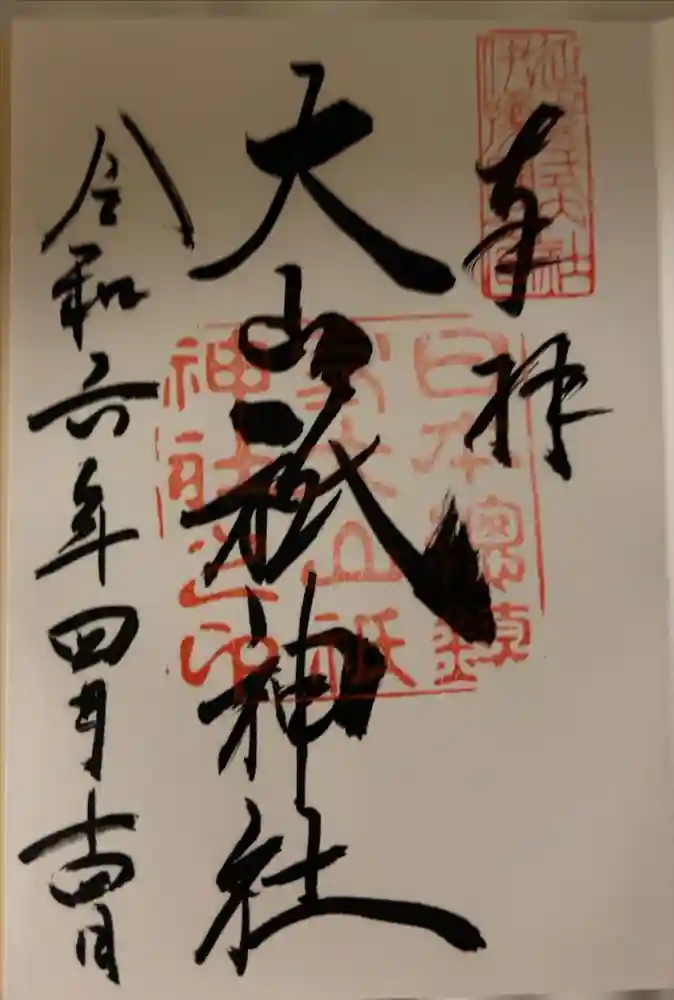 奉拝
大山祇神社
令和六年四月十四日
日本總鎮
守大山祇
神社之印